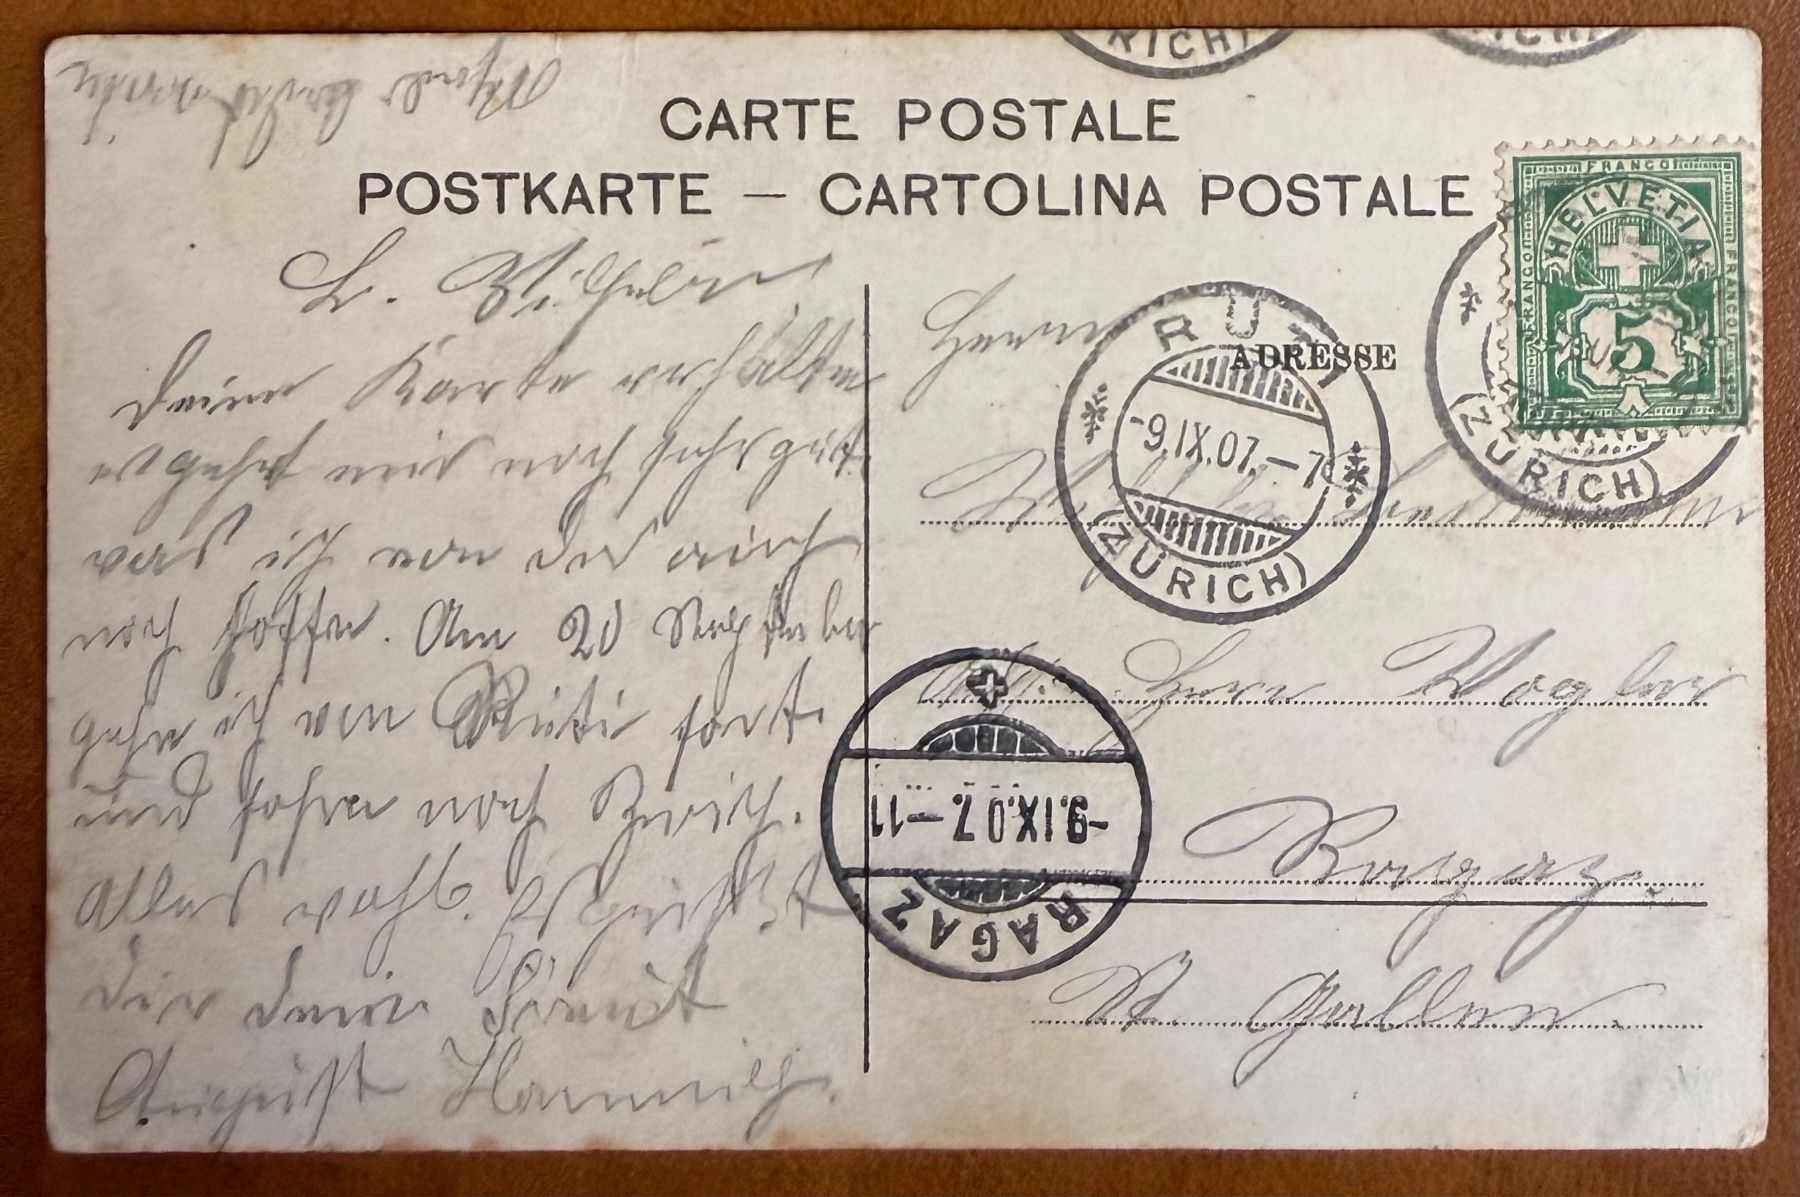 CARTE POSTALE
POSTKARTE — CARTOLINA POSTALE
L. Wilhelm
deine Karte erhalten
es geht mir noch sehr gut
was ich von dir auch
noch hoffe. Am 20 September
gehe ich von Rüti fort
und fahre nach Zürich.
Alles wohl. Es grüßt
dir dein Freund
August
ADRESSE
Herrn
Wilhelm
Herr Wagler
Ragaz.
St. Gallen.
FRANCO
FRANCO
FRANCO
HELVETIA
5
RÜTI
-9.IX.07.-7
(ZÜRICH)
(ZÜRICH)
RICH)
RICH)
-9.IX.07.-11
RAGAZ